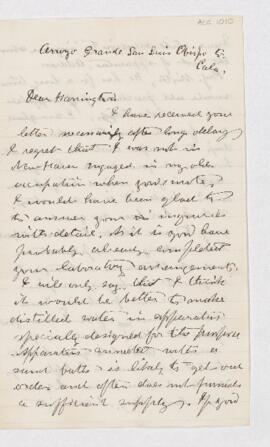 ACC 1010
Arroyo Grande San Luis Obispo Co
Cala.
Dear Harrington
I have received your
letter necessarily after long delay
I regret that I was not in
New Haven engaged in my old
occupation when you wrote,
I would have been glad to
to answer your inquiries
with detail. As it is you have
probably already completed
your laboratory arrangements.
I will only say that I think
it would be better to make
distilled water in apparatus
specially designed for the purpose
Apparatus connected with a
sand bath is likely to get out
order and often does not furnish
a sufficient supply. If you